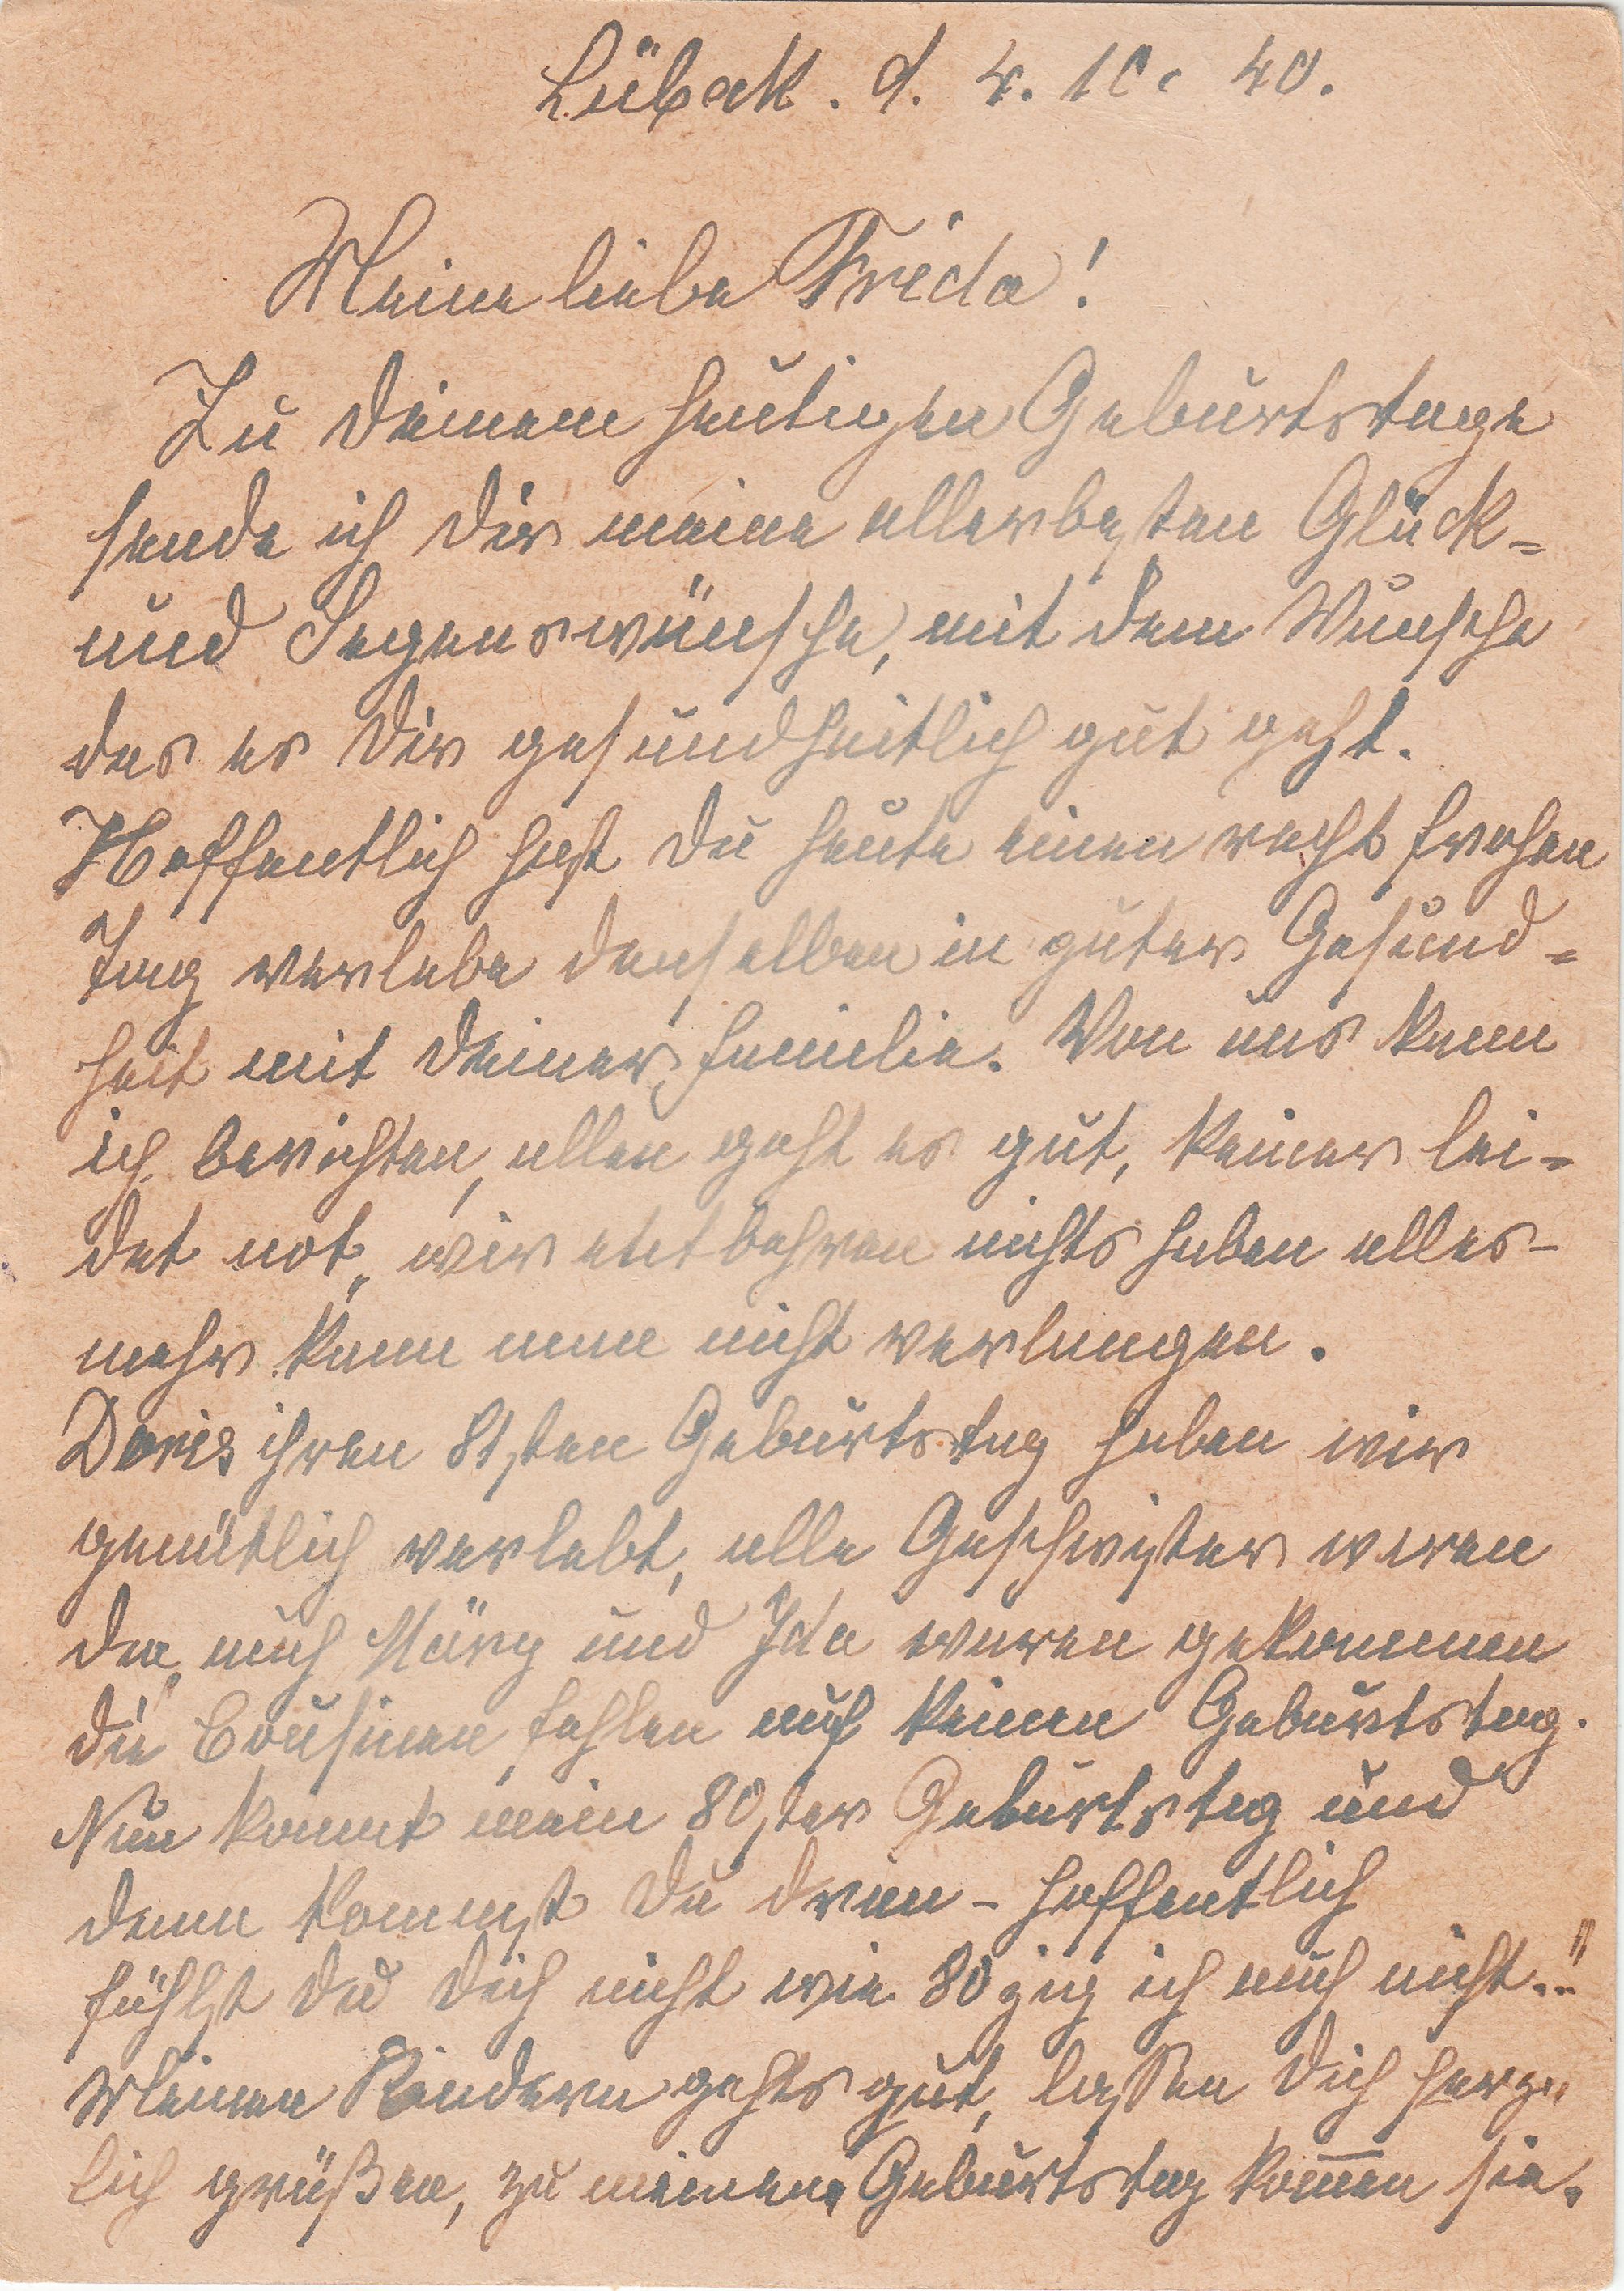 Lübeck. d. 4. 10. 40.
Meine liebe Frieda!
Zu deinem heutigen Geburtstage
sende ich dir meine allerbesten Glück=
und Segenswünsche, mit dem Wunsche
das es dir gesundheitlich gut geht.
Hoffentlich hast du heute einen recht frohen
Tag verlebe denselben in guter Gesund=
heit mit deiner Familie. Von uns kann
ich berichten, allen geht es gut, keiner lei=
det not, wir entbehren nichts haben alles-
mehr kann man nicht verlangen.
Doris ihren 81sten Geburtstag haben wir
gemütlich verlebt, alle Geschwister waren
da, auch und Ida waren gekommen
die Cousinen fehlen auf keinen Geburtstag.
Nun kommt mein 80ster Geburtstag und
dann kommst du dran - hoffentlich
fühlst du dich nicht wie 80zig ich auch nicht.!!
Meinen Kindern gehts gut, lassen dich herz=
lich grüßen, zu meinem Geburtstag kom̅en sie.